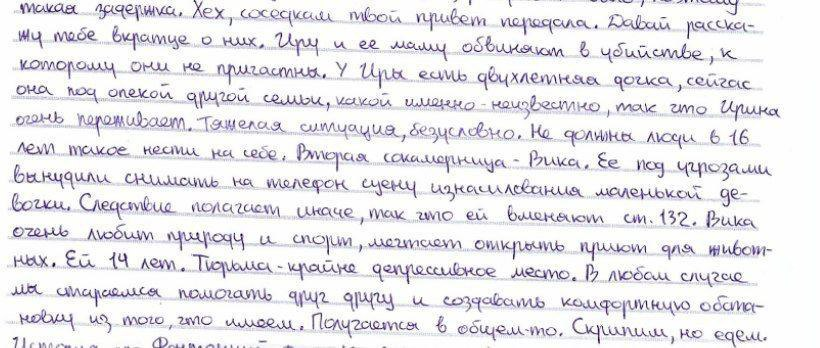 такая задержка. Хех, соседкам твой привет передала. Давай расска-
жу тебе вкратце о них. Иру и ее маму обвиняют в убийстве, к
которому они не пригастны. У Иры есть двухлетняя дочка, сейчас
она под опекой другой семьи, какой именно - неизвестно, так что Ирина
очень переживает. Тяжелая ситуация, безусловно. Не должны люди в 16
лет такое нести на себе. Вторая сокамерница - Вика. Ее под угрозами
вынудили снимать на телефон сцену изнасилования маленькой де-
вочки. Следствие полагает иначе, так что ей вменяют ст. 132. Вика
очень любит природу и спорт, мечтает открыть приют для живот-
ных. Ей 14 лет. Тюрьма - крайне депрессивное место. В любом случае
мы стараемся помогать друг другу и создавать комфортную обста-
новку из того, что имеем. Получается в общем-то. Скрипим, но едем.